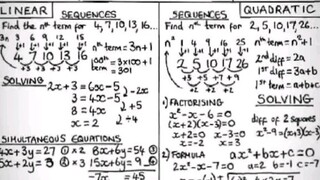 LINEAR
SEQUENCES
Find nth term for 4, 7, 10, 13, 16...
3n 3 6 9 12 15
+1 +1 +1 +1 +1
4 7 10 13 16
+3 +3 +3 +3
nth term = 3n+1
100th term = 3×100+1
= 301
SOLVING
2x+3 = 6x-5
-2x
3 = 4x-5
+5
8 = 4x
÷4
x = 2
SIMULTANEOUS EQUATIONS
4x+3y = 27 ① ×2 8x+6y=54 ③
5x+2y = 3 ② ×3 15x+6y=9 ④
-7x = 45
SEQUENCES
QUADRATIC
Find nth term for 2, 5, 10, 17, 26...
n² 1 4 9 16 25
+1 +1 +1 +1 +1
2 5 10 17 26
+3 +5 +7 +9
+2 +2 +2
nth term = n²+1
1st diff = 3a+b
2nd diff = 2a
SOLVING
1) FACTORISING
x²-x-6=0
(x+2)(x-3)=0
x+2=0 x-3=0
x=-2 x=3
diff of 2 squares
x²-9=(x+3)(x-3)
2) FORMULA
ax²+bx+c=0
2x²-x-7=0
a=2 b=-1 c=-7